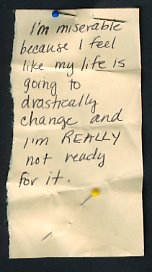 I'm miserable
because I feel
like my life is
going to
drastically
change and
I'm REALLY
not ready
for it.